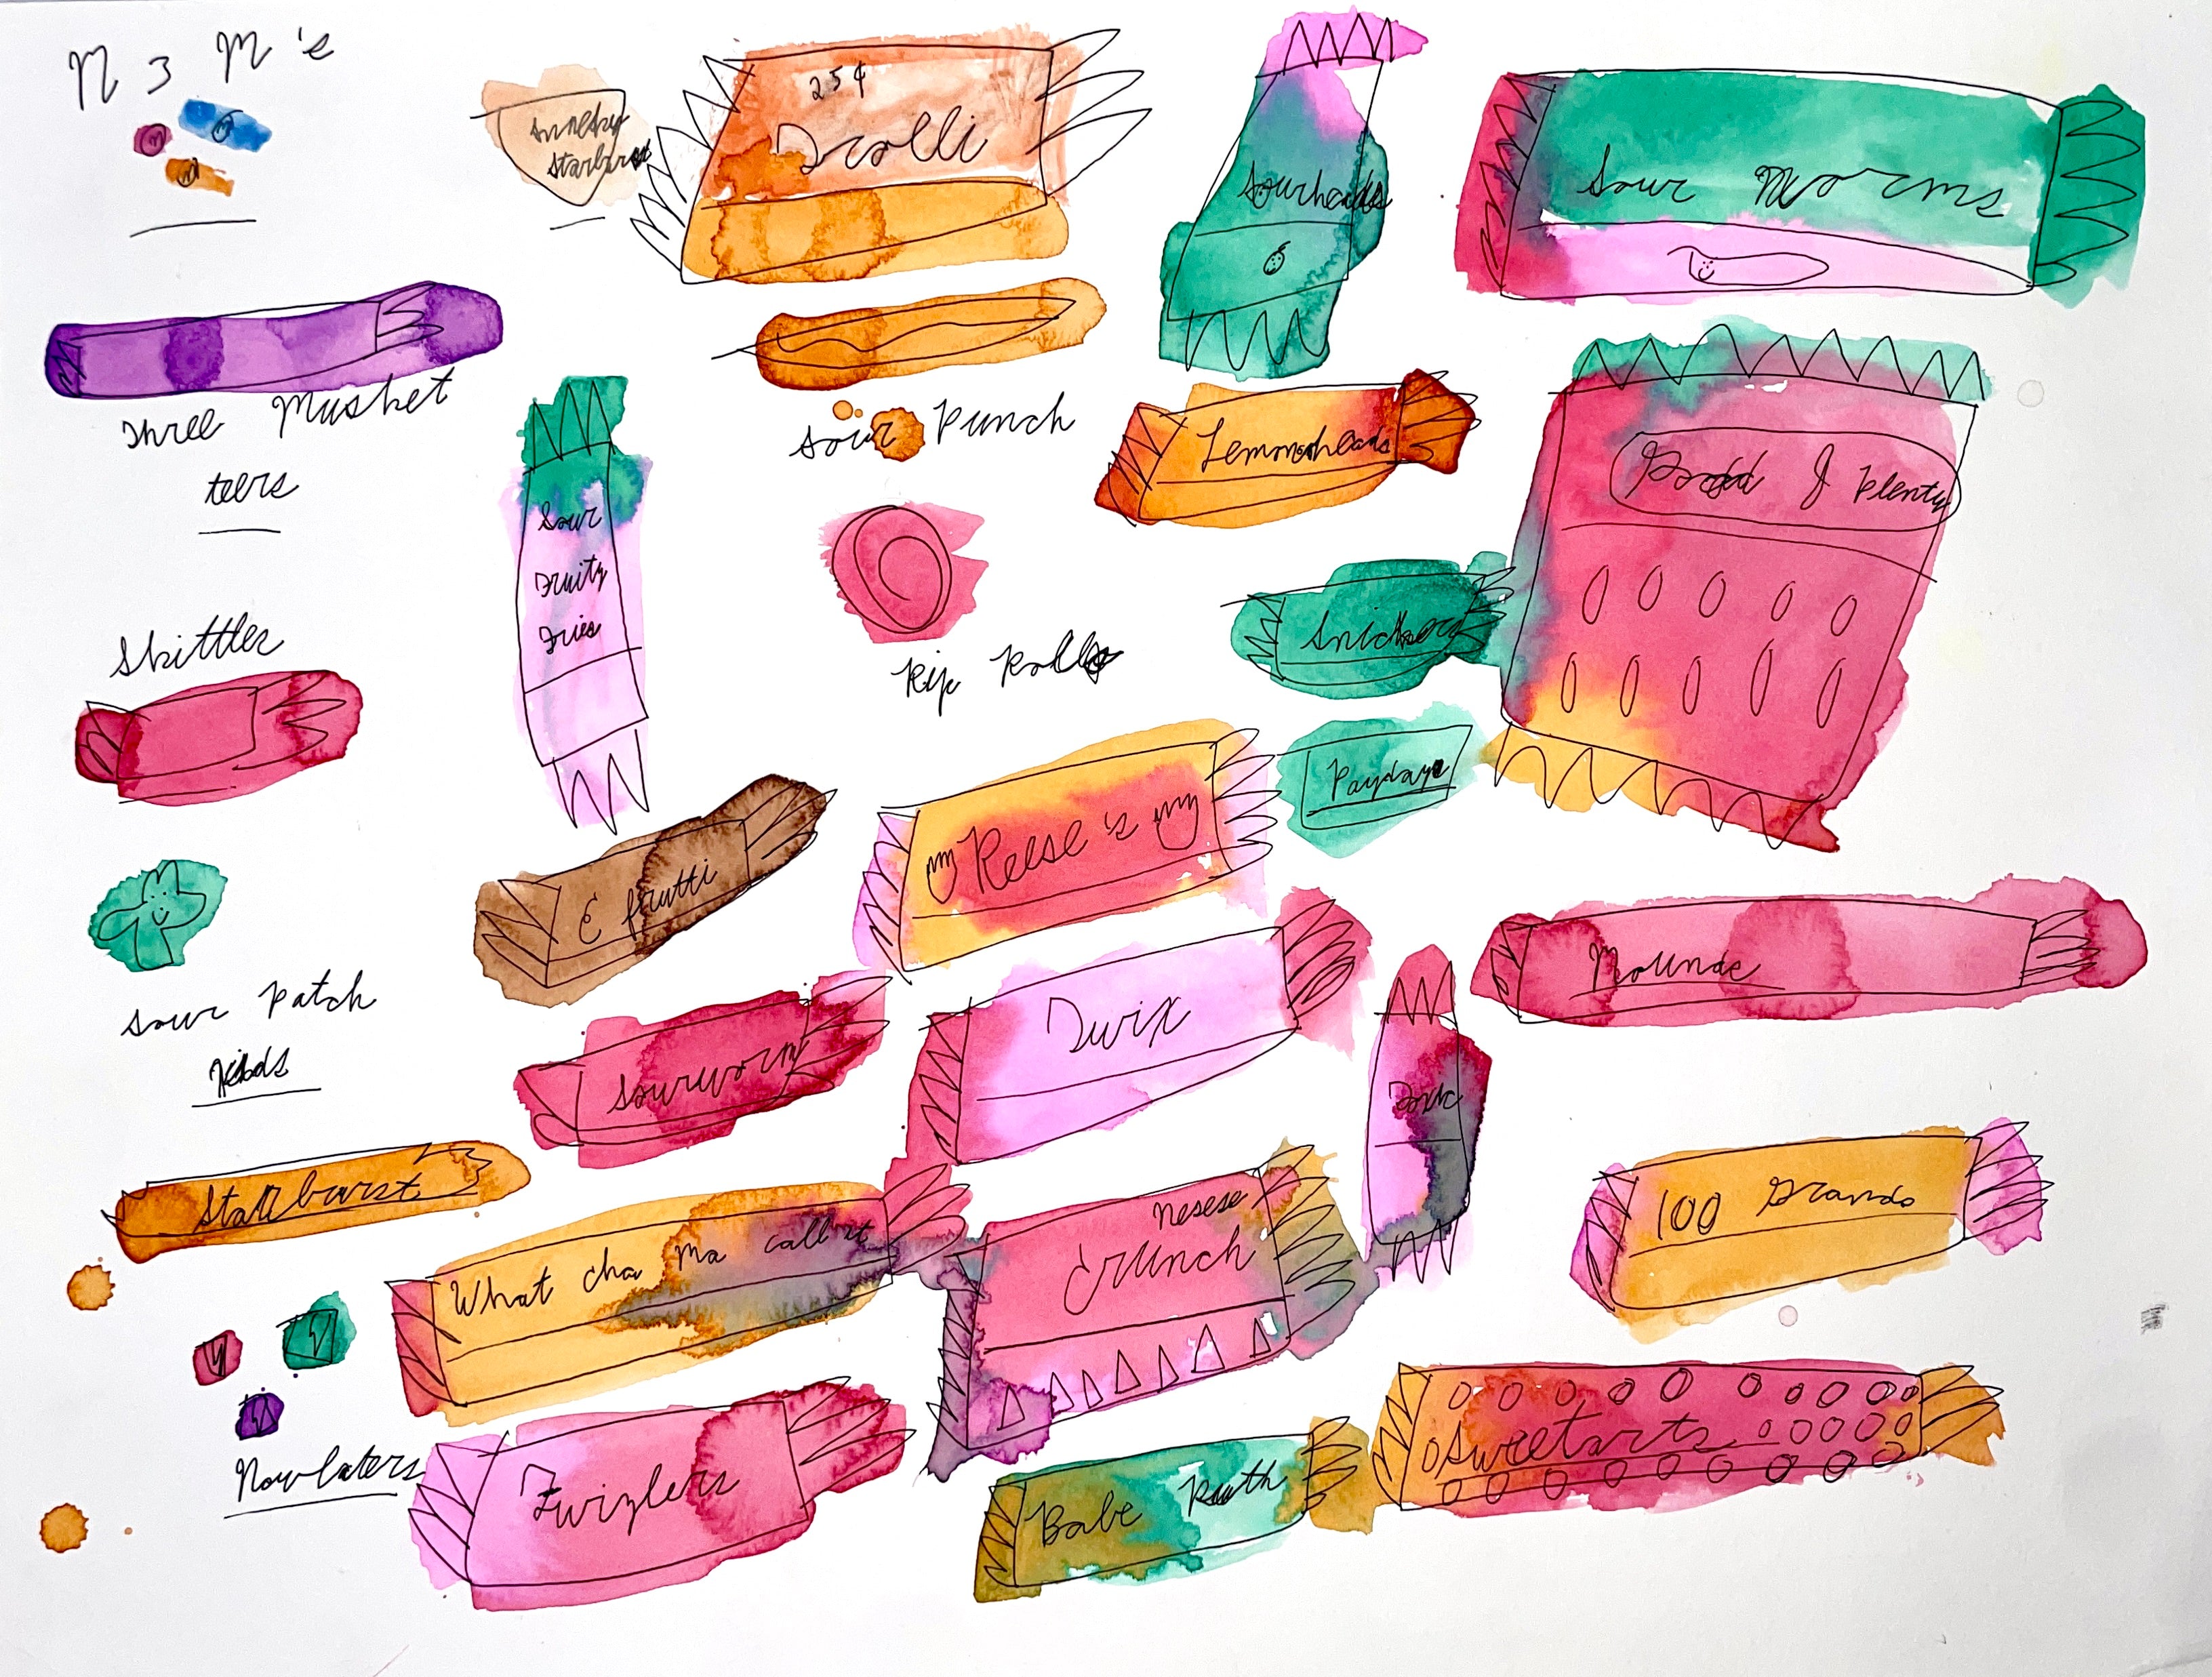 M & M's
Smelky
Starbrust
25¢
Trolli
Sourheads
Sour Worms
Three Musket
teers
Sour
Fruity
Fries
Sour Punch
Lemonheads
Good & Plenty
Skittles
Rip Rolls
Snickers
Payday
E frutti
Reese's
Sour Patch
Kids
Sourworm
Twix
Mounds
Starburst
What cha ma call it
Nesese
Crunch
100 Grands
Now laters
Twizlers
Babe Ruth
Sweetarts